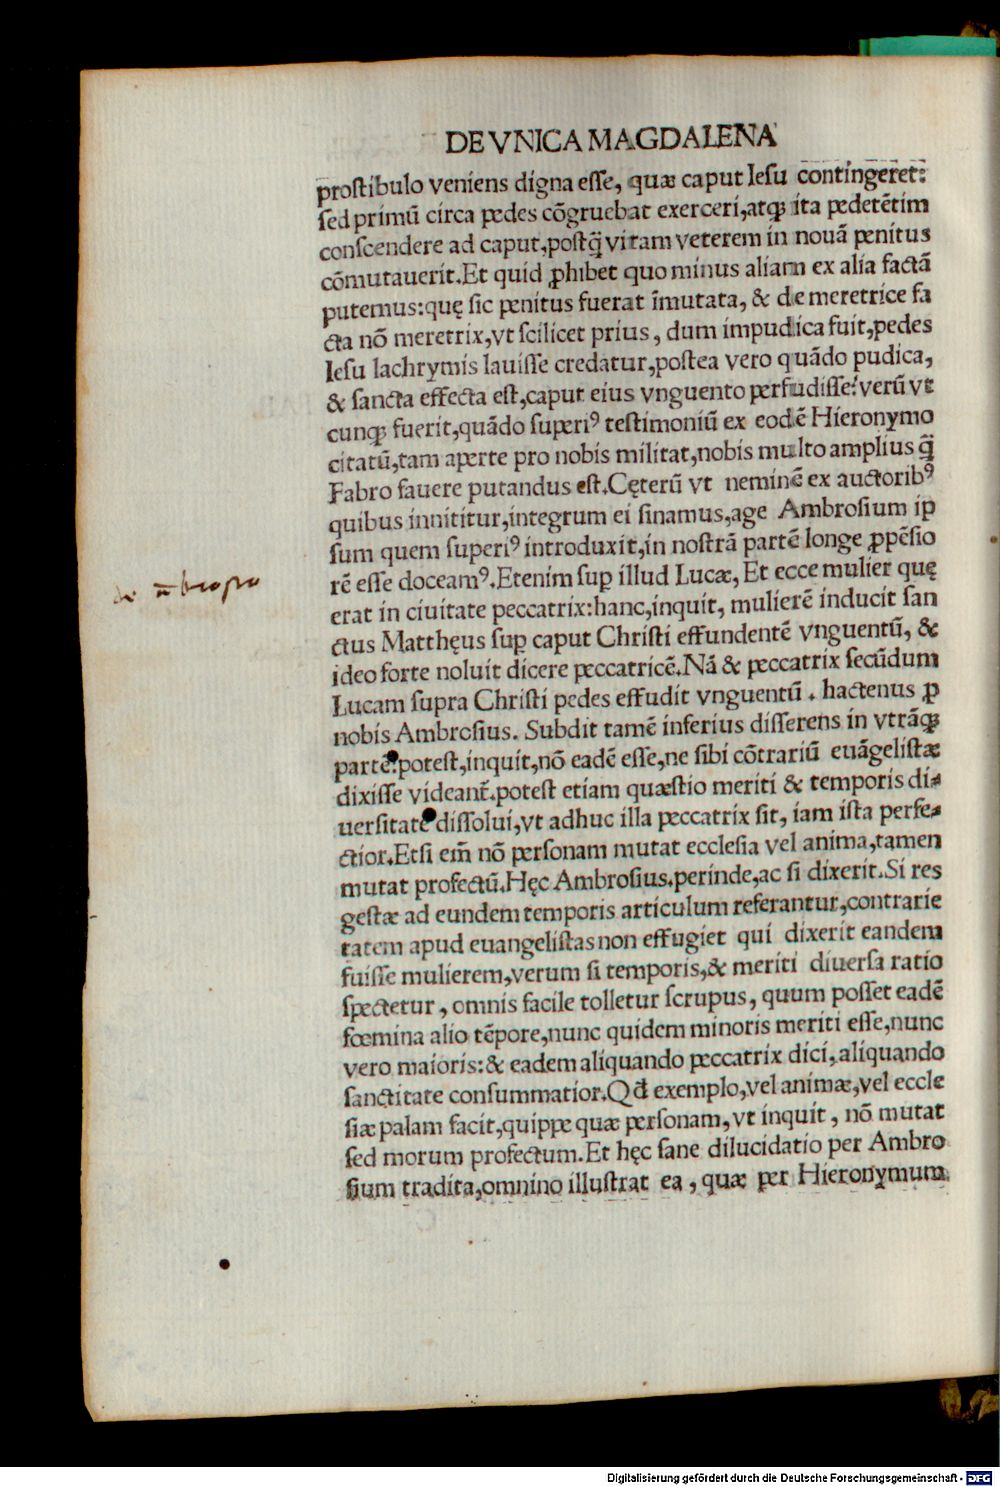 DE VNICA MAGDALENA
prostibulo veniens digna esse, quæ caput Iesu contingeret:
sed primū circa pedes cōgruebat exerceri, atqꝫ ita pedetētim
conscendere ad caput, postq̄ vitam veterem in nouā penitus
cōmutauerit. Et quid ꝓhibet quo minus aliam ex alia factā
putemus: quę sic penitus fuerat īmutata, & de meretrice fa
cta nō meretrix, vt scilicet prius, dum impudica fuit, pedes
Iesu lachrymis lauisse credatur, postea vero quādo pudica,
& sancta effecta est, caput eius vnguento perfudisse? verū vt
cunqꝫ fuerit, quādo superiꝰ testimoniū ex eodē Hieronymo
citatū, tam aperte pro nobis militat, nobis multo amplius q̄
Fabro fauere putandus est. Cęterū vt neminē ex auctoribꝰ
quibus innititur, integrum ei sinamus, age Ambrosium ip
sum quem superiꝰ introduxit, in nostrā partē longe ꝓpēsio
rē esse doceamꝰ. Etenim suꝑ illud Lucæ, Et ecce mulier quę
erat in ciuitate peccatrix: hanc, inquit, mulierē inducit san
ctus Matthęus suꝑ caput Christi effundentē vnguentū, &
ideo forte noluit dicere peccatricē. Nā & peccatrix secūdum
Lucam supra Christi pedes effudit vnguentū. hactenus ꝓ
nobis Ambrosius. Subdit tamē inferius disserens in vtrāqꝫ
de ābrosio
partē: potest, inquit, nō eadē esse, ne sibi cōtrariū euāgelistæ
dixisse videant̄. potest etiam quæstio meriti & temporis di-
uersitate dissolui, vt adhuc illa peccatrix sit, iam ista perfe-
ctior. Etsi em̄ nō personam mutat ecclesia vel anima, tamen
mutat profectū. Hęc Ambrosius. perinde, ac si dixerit. Si res
gestæ ad eundem temporis articulum referantur, contrarie
tatem apud euangelistas non effugiet qui dixerit eandem
fuisse mulierem, verum si temporis, & meriti diuersa ratio
spectetur, omnis facile tolletur scrupus, quum posset eadē
fœmina alio tēpore, nunc quidem minoris meriti esse, nunc
vero maioris: & eadem aliquando peccatrix dici, aliquando
sanctitate consummatior. Qd̄ exemplo, vel animæ, vel eccle
siæ palam facit, quippe quæ personam, vt inquit, nō mutat
sed morum profectum. Et hęc sane dilucidatio per Ambro
sium tradita, omnino illustrat ea, quæ per Hieronymum
Digitalisierung gefördert durch die Deutsche Forschungsgemeinschaft - DFG